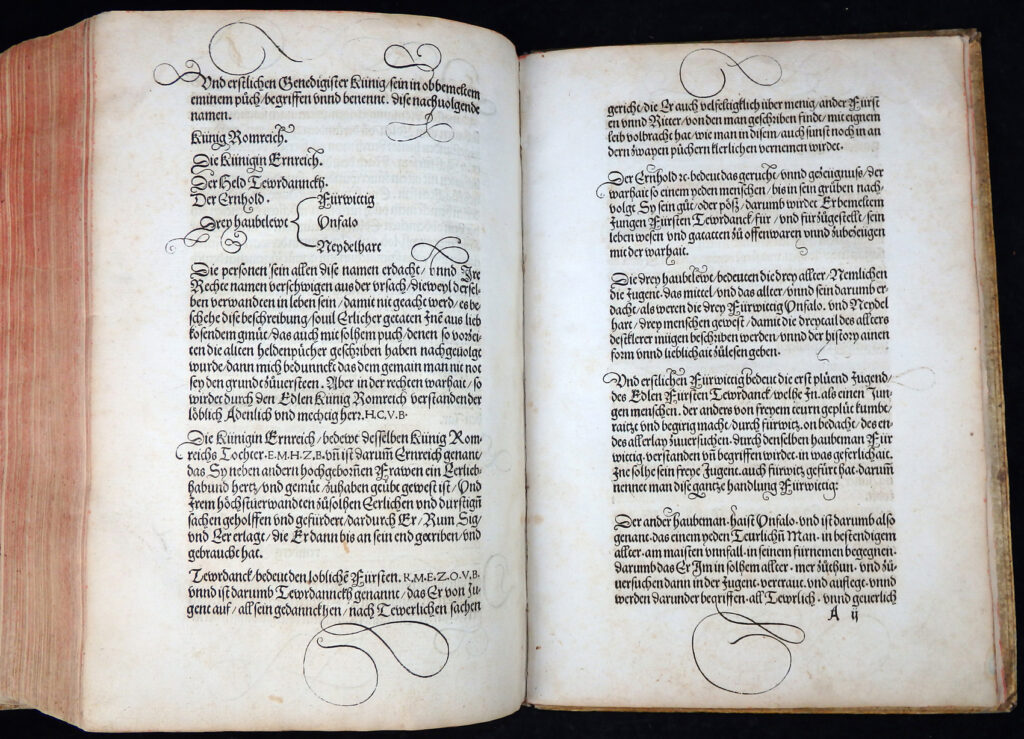 Vnd erstlichen Genedigister Künig/ sein in obbemeltem
meinem půch/ begriffen vnnd benennt. dise nachuolgende
namen.
Künig Romreich.
Die Künigin Ernreich.
Der Held Tewrdannckh.
Der Ernhold.
Drey haubtlewt
Fürwittig
Vnfalo
Neydelhart
Die personen sein allen dise namen erdacht/ vnnd Ire
Rechte namen verschwigen aus der vrsach/ dieweyl der sel-
ben verwandten in leben sein/ damit nit geacht werd/ es be-
schehe dise beschreibung/ souil Erlicher getaten Ine aus lieb
kosendem gmüt/ das auch mit solhem puch/ denen so vorzei-
ten die allten heldenpücher geschriben haben nachgeuolgt
wurde/ dann mich bedunnckt das dem gemain man nit not
sey den grundt zůuersteen. Aber in der rechten warhait/ so
wirdet durch den Edlen Künig Romreich verstanden der
löblich Adenlich vnd mechtig herr. H.C.V.B.
Die Künigin Ernreich/ bedewt desselben Künig Rom-
reichs Tochter. E.M.H.Z.B. vn̄ ist darum̄ Ernreich genant
das Sy neben andern hochgebornen̄ Frawen ein Eerlieb-
habund hertz/ vnd gemüt zuhaben geübt gewest ist/ Vnd
Irem höchstuerwandten zůsolhen Eerlichen vnd durstign̄
sachen geholffen vnd gefürdert/ dardurch Er/ Rum Sig
vnd Eer erlagt/ die Er dann bis an sein end getriben/ vnd
gebraucht hat.
Tewrdanck/ bedeut den loblichē Fürsten. R.M.E.Z.O.V.B.
vnnd ist darumb Tewrdannckh genannt/ das Er von Ju-
gent auf/ all sein gedannckhen/ nach Tewerlichen sachen
gericht/ die Er auch velfeltigklich über menig/ ander Fürst
en vnnd Ritter/ von den man geschriben findt/ mit eignem
leib volbracht hat/ wie man in disem/ auch sunst noch in an
dern zwayen püchern klerlichen vernemen wirdet.
Der Ernhold ꝛc. bedeut das gerucht/ vnnd gezeugnuss/ der
warhait so einem yeden menschen/ bis in sein grůben nach-
volgt Sy sein gůt/ oder pöß/ darumb wirdet Er bemeltem
Jungen Fürsten Tewrdanck/ für/ vnd für zůgestelt/ sein
leben wesen vnd gatatten zů offenwaren vnnd zůbezeugen
mit der warhait.
Die drey haubtlewt/ bedeuten die drey allter/ Nemlichen
die Jugent. das mittel/ vnd das allter/ vnnd sein darumb er
dacht/ als weren die drey Fürwittig Vnfalo. vnd Neydel
hart/ drey menschen gewest/ damit die dreytail des allters
destklerer mügen beschriben werden/ vnnd der history ainen
form vnnd lieblichait zůlesen geben.
Vnd erstlichen Fürwittig bedeut die erst plüend Jugend/
des Edlen Fürsten Tewrdanck/ welhe In. als einen Jun-
gen menschen. der anders von freyem teurn geplüt kumbt/
raitzt vnd begirig macht/ durch fürwitz. on bedacht/ des en-
des allerlay zůuersuchen. durch denselben haubtman Für
wittig. verstanden vn̄ begriffen wirdt. in was geferlichait.
Ine solhe sein freye Jugent. auch fürwitz gefürt hat. darum̄
nennet man dise gantze handlung Fürwittig:
Der ander haubtman. haist Vnfalo. vnd ist darumb also
genant. das einem yeden Teurlichn̄ Man. in bestendigem
allter. am maisten vnnfall. in seinem fürnemen begegnen.
darumb das Er Im in solhem allter. mer zůthun. vnd zů-
uersuchen dann in der Jugent. vertraut. vnd auflegt. vnnd
werden darunder begriffen. all Tewrlich. vnnd geuerlich
A ij